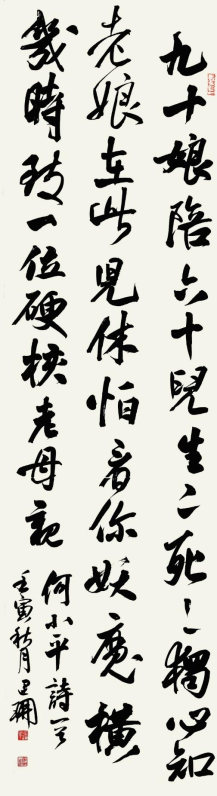 九十娘陪六十兒生〻死〻獨心知
老娘在此兒休怕看你妖魔橫
幾時致一位硬核老母親
何小平詩
壬寅秋月